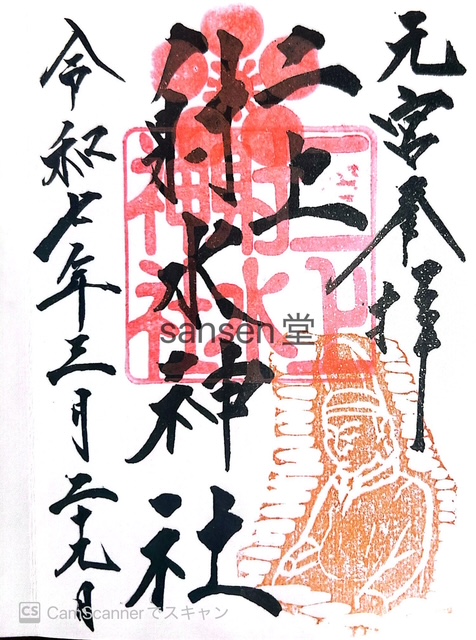 元宮奉拝
二上
射水神社
令和七年三月二十九日
二上
射水
神社
sansen堂
CS CamScannerでスキャン